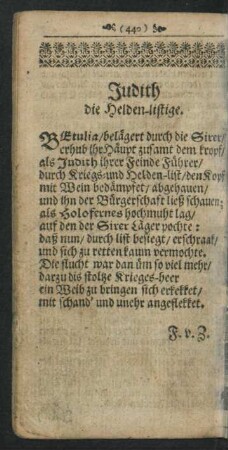 (440)
Judith
die Helden-listige.
BEtulia/belägert durch die Sirer/
erhub ihr Häupt zusamt dem kropf/
als Judith ihrer Feinde Führer/
durch Kriegs-und Helden-list/den Kopf
mit Wein bedämpfet/abgehauen/
und ihn der Bürgerschaft ließ schauen;
als Holofernes hochmuht lag/
auf den der Sirer Läger pochte:
daß nun/durch list besiegt/erschraak/
und sich zu retten kaum vermochte.
Die flucht war dan üm so viel mehr/
darzu dis stoltze Krieges-heer
ein Weib zu bringen sich erkekket/
mit schand' und unehr angeflekket.
F. v. Z.